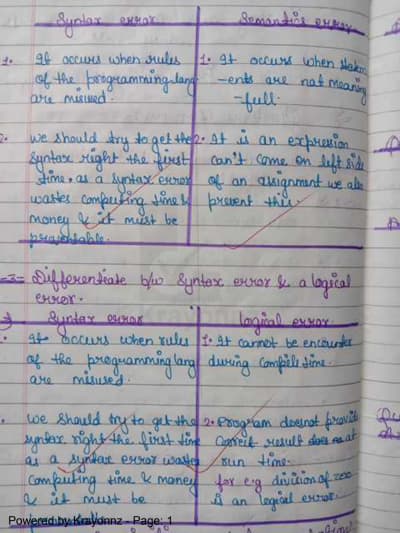 Syntax error
Semantics error
1. It occurs when rules
of the programming lang
are misused.
1. It occurs when statem
-ents are not meaning
-full.
2. we should try to get the
syntax right the first
time. as a syntax error
wastes computing time &
money & it must be
preventable.
2. It is an expression
can't come on left side
of an assignment we also
prevent this.
=3= Differentiate b/w Syntax error & a logical
error.
Syntax error
logical error
It occurs when rules
of the programming lang
are misused.
1. It cannot be encounter
during compile time.
we should try to get the
syntax right the first time
as a syntax error wastes
computing time & money
& it must be
2. Program doesnot provide
correct result at
run time.
for e.g division of zero
is an logical error.
Powered by Krayonnz - Page: 1